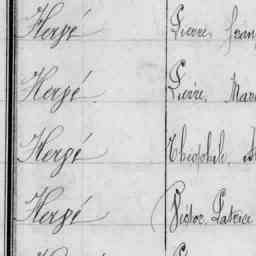 Hergé Pierre, Jean
Hergé Pierre, Mar
Hergé Théophile, A
Hergé Victor, Patrice